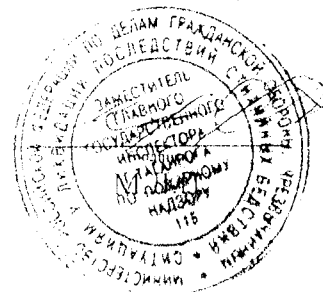 МИНИСТЕРСТВО РОССИЙСКОЙ ФЕДЕРАЦИИ ПО ДЕЛАМ ГРАЖДАНСКОЙ ОБОРОНЫ, ЧРЕЗВЫЧАЙНЫМ СИТУАЦИЯМ И ЛИКВИДАЦИИ ПОСЛЕДСТВИЙ СТИХИЙНЫХ БЕДСТВИЯ
ЗАМЕСТИТЕЛЬ
ГЛАВНОГО
ГОСУДАРСТВЕННОГО
ИНСПЕКТОРА
Г. ТАГАНРОГА
ПО ПОЖАРНОМУ
НАДЗОРУ
115